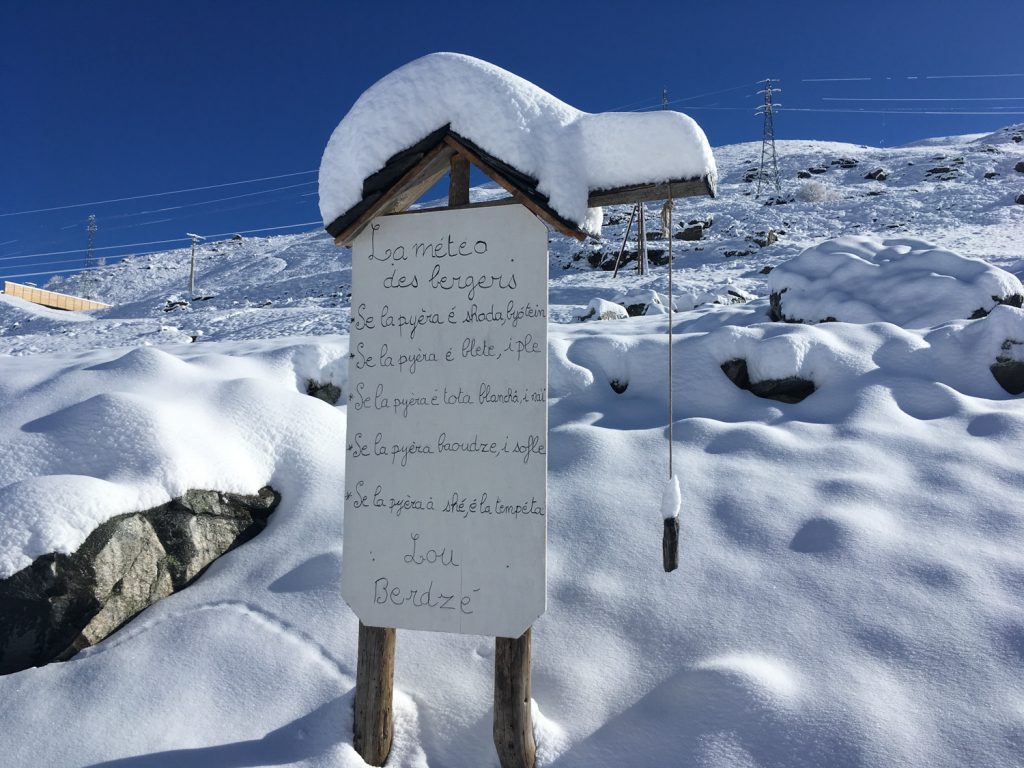 La météo
des bergers
* Se la pyèra é shoda, byótein
* Se la pyèra é blete, i ple
* Se la pyèra é tota blanchâ, i naï
* Se la pyèra baoudze, i sofle
* Se la pyèra à shé, é la tempéta
Lou
Berdzé